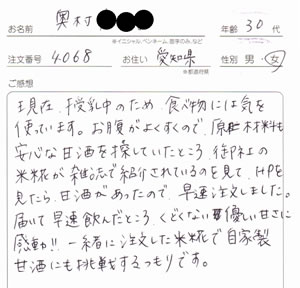 お名前 奥村 年齢 30代
※イニシャル、ペンネーム、苗字のみ、など
注文番号 4068 お住い 愛知県 性別 男・女
※都道府県
ご感想
現在、授乳中のため 食べ物には気を
使っています。お腹がよくすくので、原材料も
安心な甘酒を探していたところ、御社の
米糀が雑誌で紹介されているのを見て、HPを
見たら、甘酒があったので、早速注文しました。
届いて早速飲んだところ くどくない優しい甘さに
感動!! 一緒に注文した米糀で自家製
甘酒にも挑戦するつもりです。